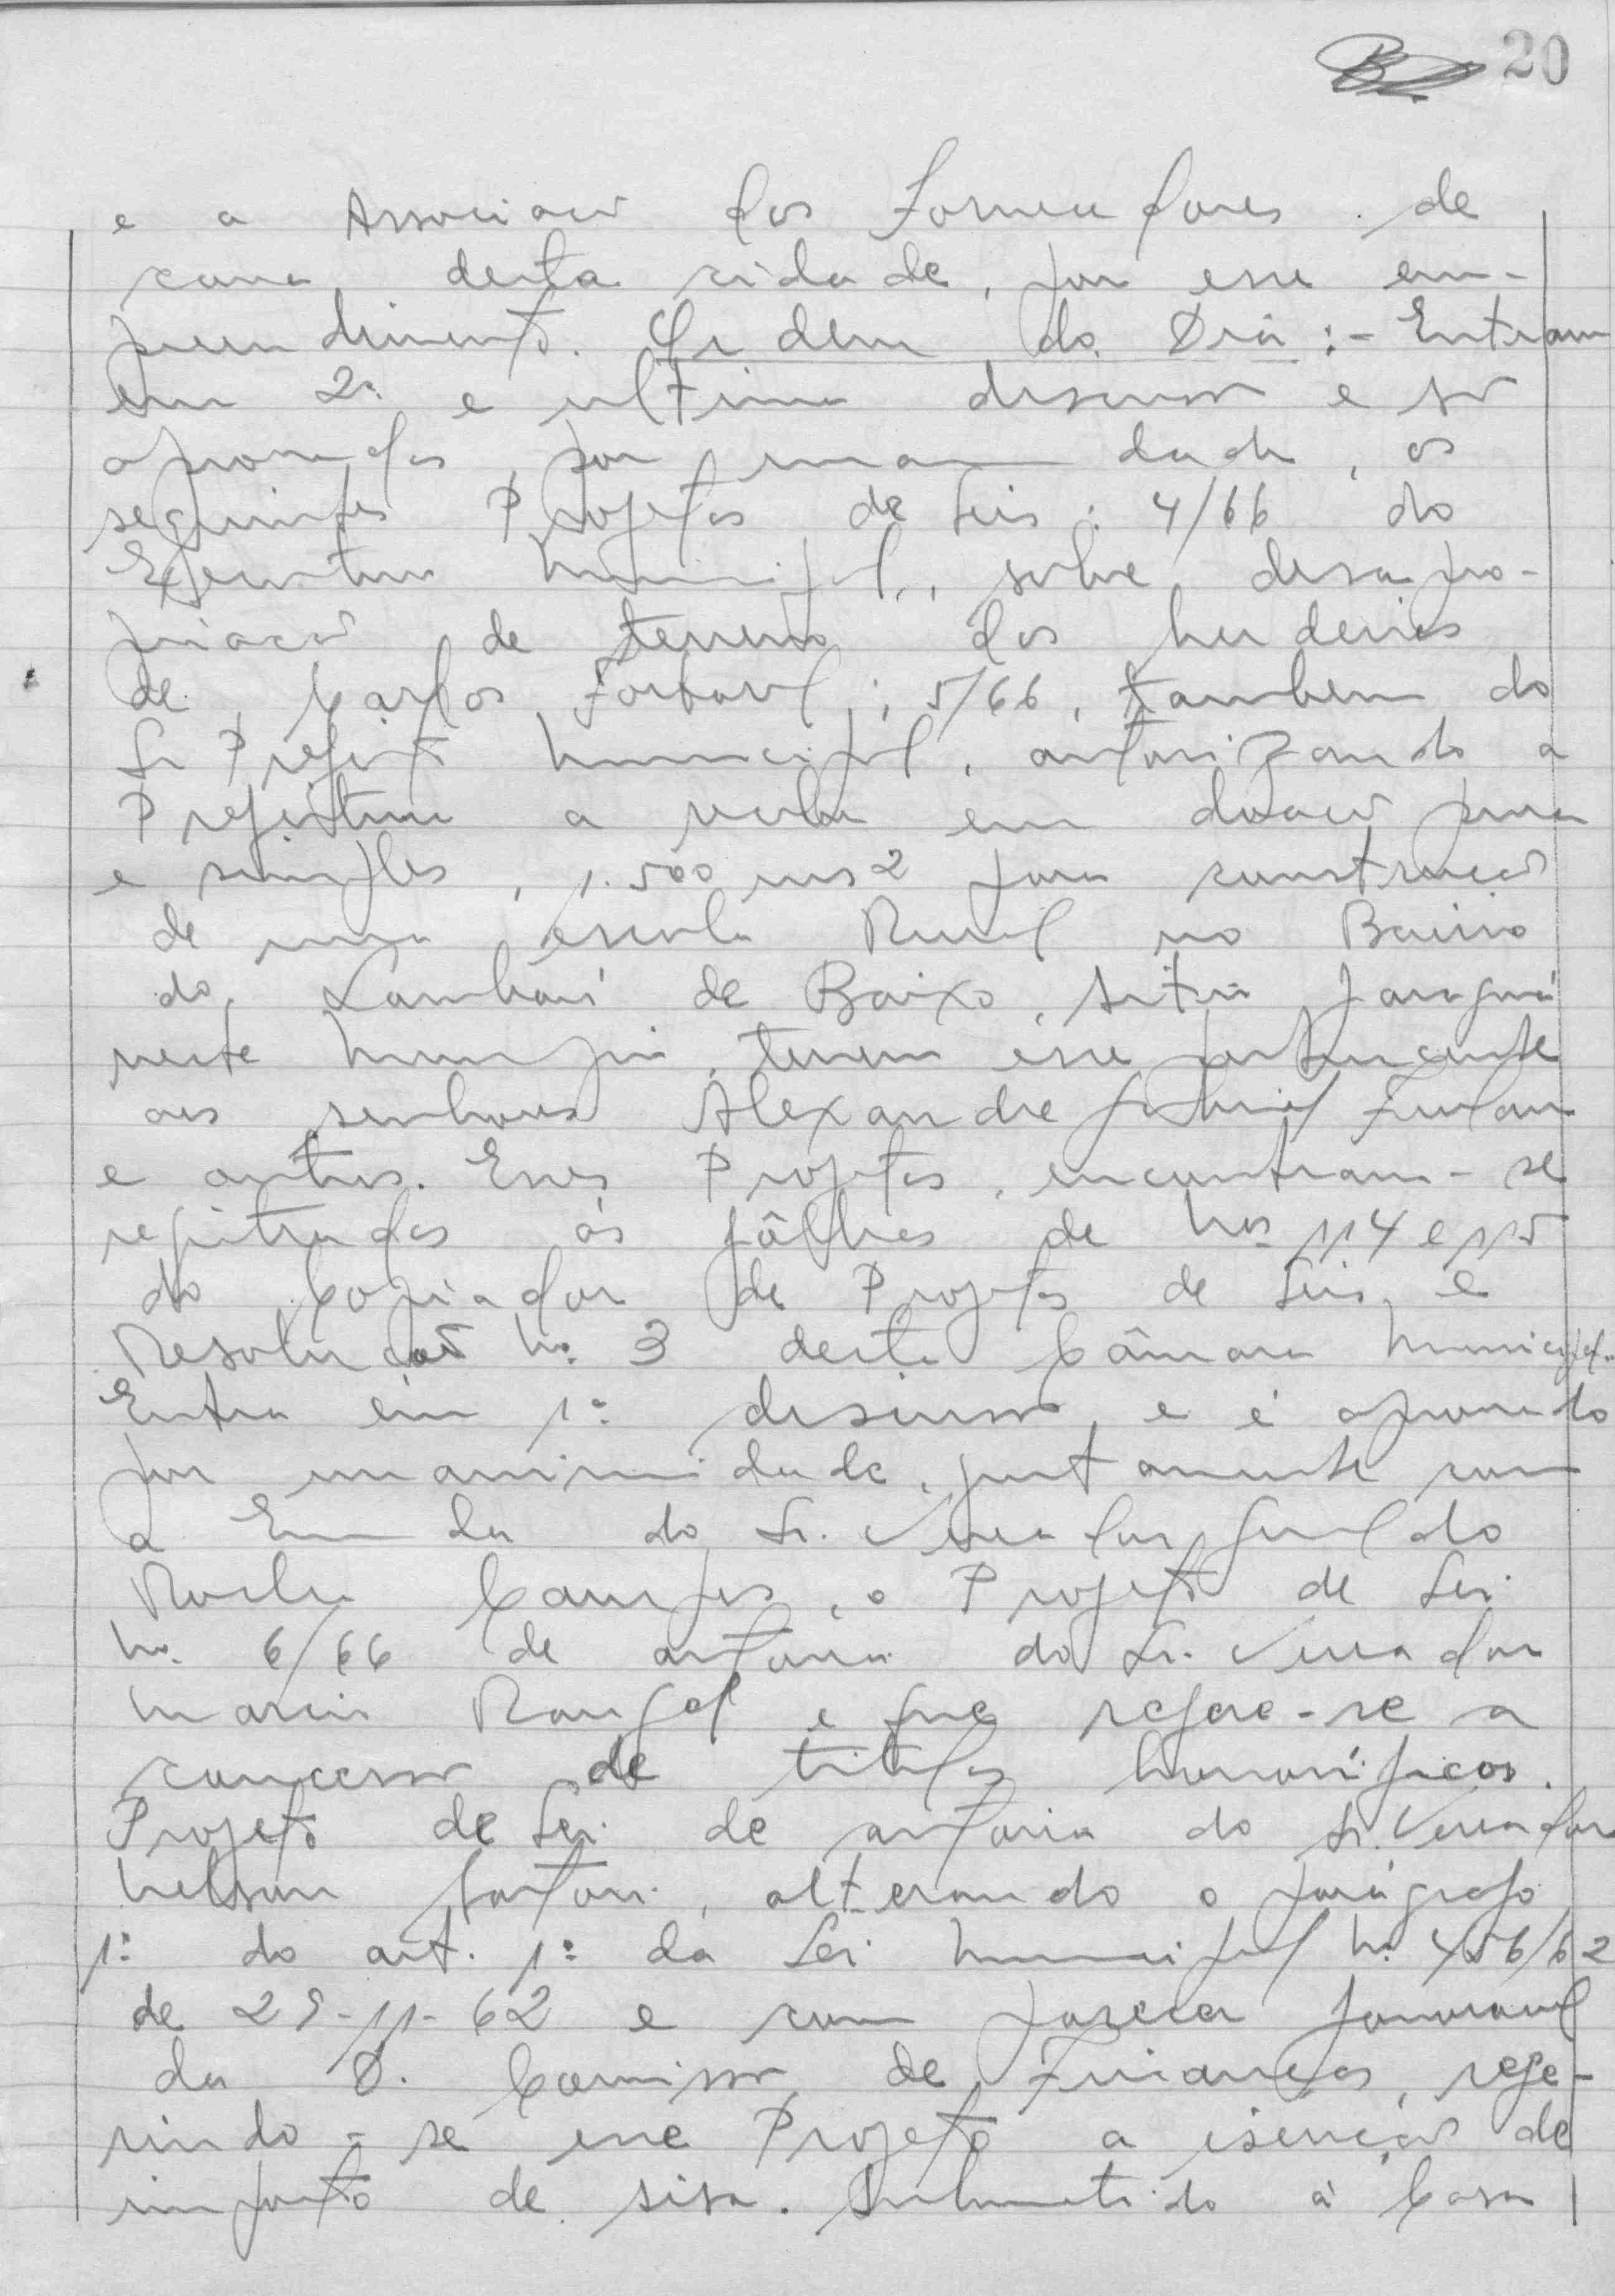 20
e a Associacão dos Fornecedores de
cana desta cidade, por esse em-
preendimento. Ordem do Dia :- Entram
em 2ª e ultima discussão e são
aprovados, por unanimidade, os
seguintes Projetos de Leis : 4/66 do
Executivo Municipal, sobre desapro-
priacão de terreno dos herdeiros
de Carlos ; 5/66, tambem do
Sr Prefeito Municipal, autorizando a
Prefeitura a receber em doacão pura
e simples, 1.500 ms2 para construcão
de uma escola Rural no Bairro
do Lambari de Baixo, sitio Jaraguá
neste Municipio, terreno esse pertencente
aos senhores Alexandre Gabriel Furlan
e outros. Esses Projetos, encontram-se
registrados às fôlhas de Nos 114 e 115
do Copiador de Projetos de Leis e
Resolucões Nº 3 desta Câmara Municipal.
Entra em 1ª discussão, e é aprovado
por unanimidade, juntamente com
a Emenda do Sr. Vereador Geraldo
Rocha Campos, o Projeto de Lei
Nº 6/66 de autoria do Sr. Vereador
Mario Rangel e que refere-se a
concessão de titulos honorificos.
Projeto de Lei de autoria do Sr. Vereador
Nelson , alterando o parágrafo
1º do art. 1º da Lei Municipal Nº 456/62
de 29-11-62 e com parecer favoravel
da D. Comissão de Financas, refe-
rindo-se esse Projeto a isenção de
imposto de sisa. Submetido à Casa